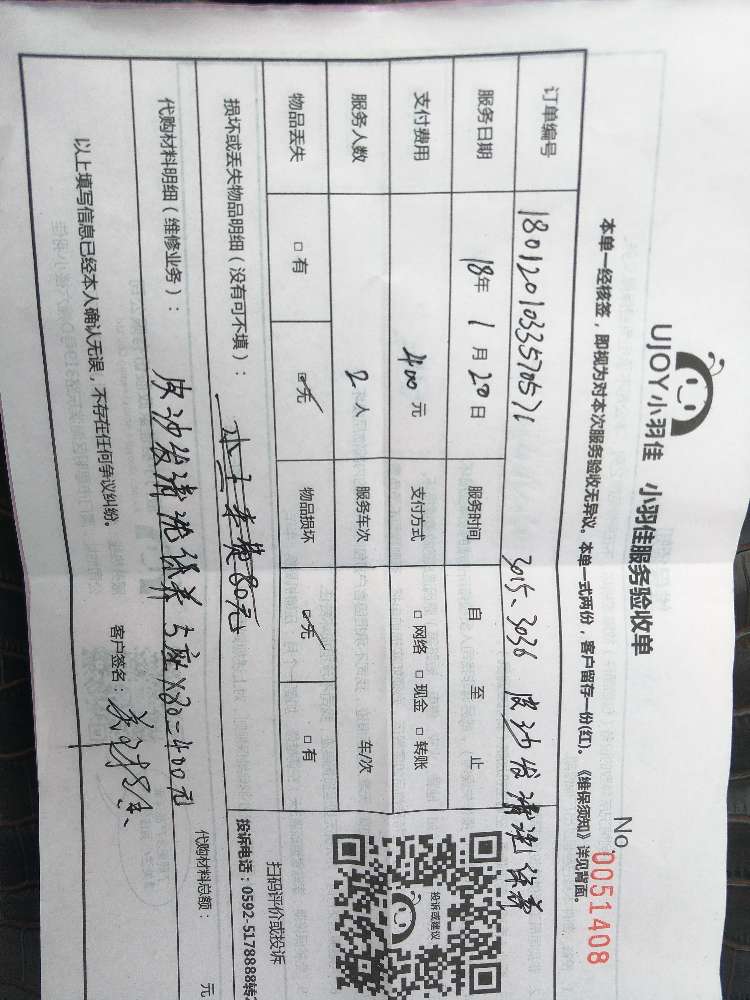 UJOY小羽佳 小羽佳服务验收单
No.0051408
本单一经核签，即视为对本次服务验收无异议。本单一式两份，客户留存一份(红)。《维保须知》详见背面。
订单编号 3015、3036 皮沙发清洗保养
服务日期 18年 1月 20日 服务时间 自 至 止
支付费用 400元 支付方式 □网络 □现金 □转账
服务人数 2人 服务车次 车/次
物品丢失 □有 □无 物品损坏 □无 □有
投诉或建议
扫码评价或投诉
投诉电话：0592-5178888转
损坏或丢失物品明细（没有可不填）： 80元
代购材料明细（维修业务）： 皮沙发清洗保养 5座×80=400元
代购材料总额： 元
以上填写信息已经本人确认无误，不存在任何争议纠纷。
客户签名：